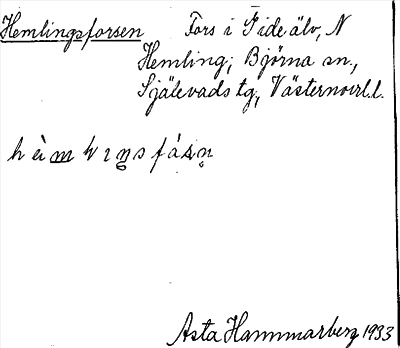 Hemlingsforsen Fors i Gideälv, N
Hemling; Björna sn.,
Själevads tg, Västernorrl.l.
Asta Hammarberg 1933